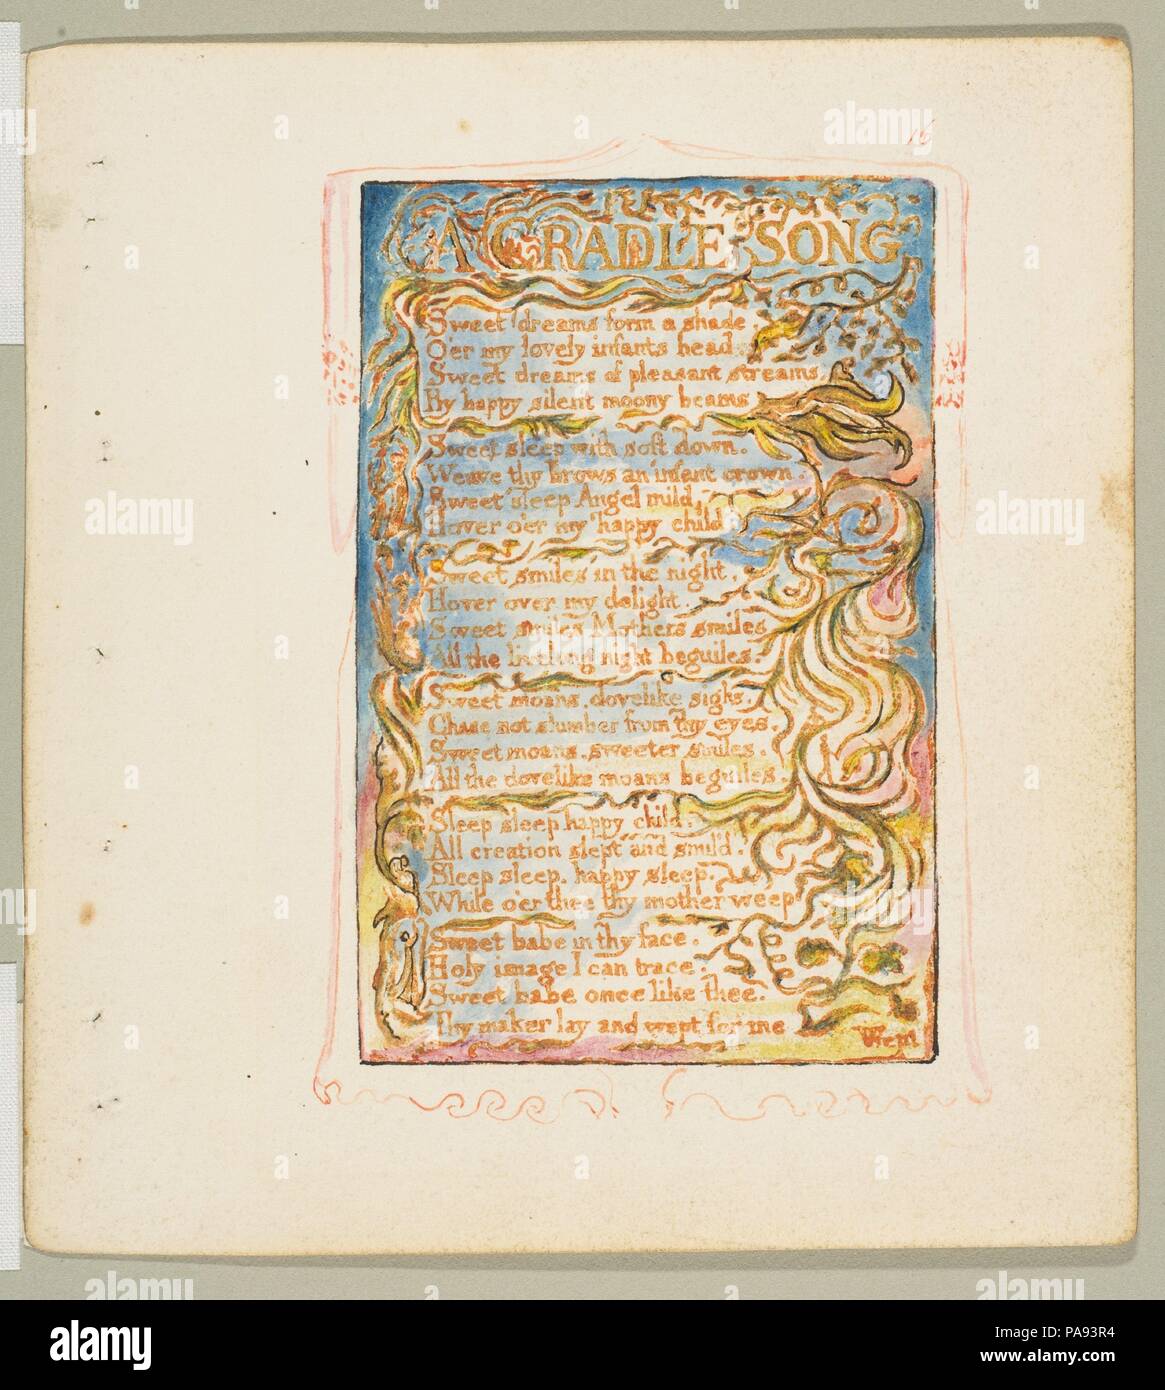 16
A CRADLE SONG
Sweet dreams form a shade,
O'er my lovely infants head.
Sweet dreams of pleasant streams,
By happy silent moony beams
Sweet sleep with soft down.
Weave thy brows an infant crown.
Sweet sleep Angel mild,
Hover o'er my happy child.
Sweet smiles in the night,
Hover over my delight.
Sweet smiles Mothers smiles
All the livelong night beguiles.
Sweet moans, dovelike sighs,
Chase not slumber from thy eyes.
Sweet moans, sweeter smiles,
All the dovelike moans beguiles.
Sleep sleep happy child.
All creation slept and smil'd.
Sleep sleep, happy sleep,
While o'er thee thy mother weep
Sweet babe in thy face,
Holy image I can trace.
Sweet babe once like thee,
Thy maker lay and wept for me
Wept
alamy
Image ID: PA93R4
www.alamy.com